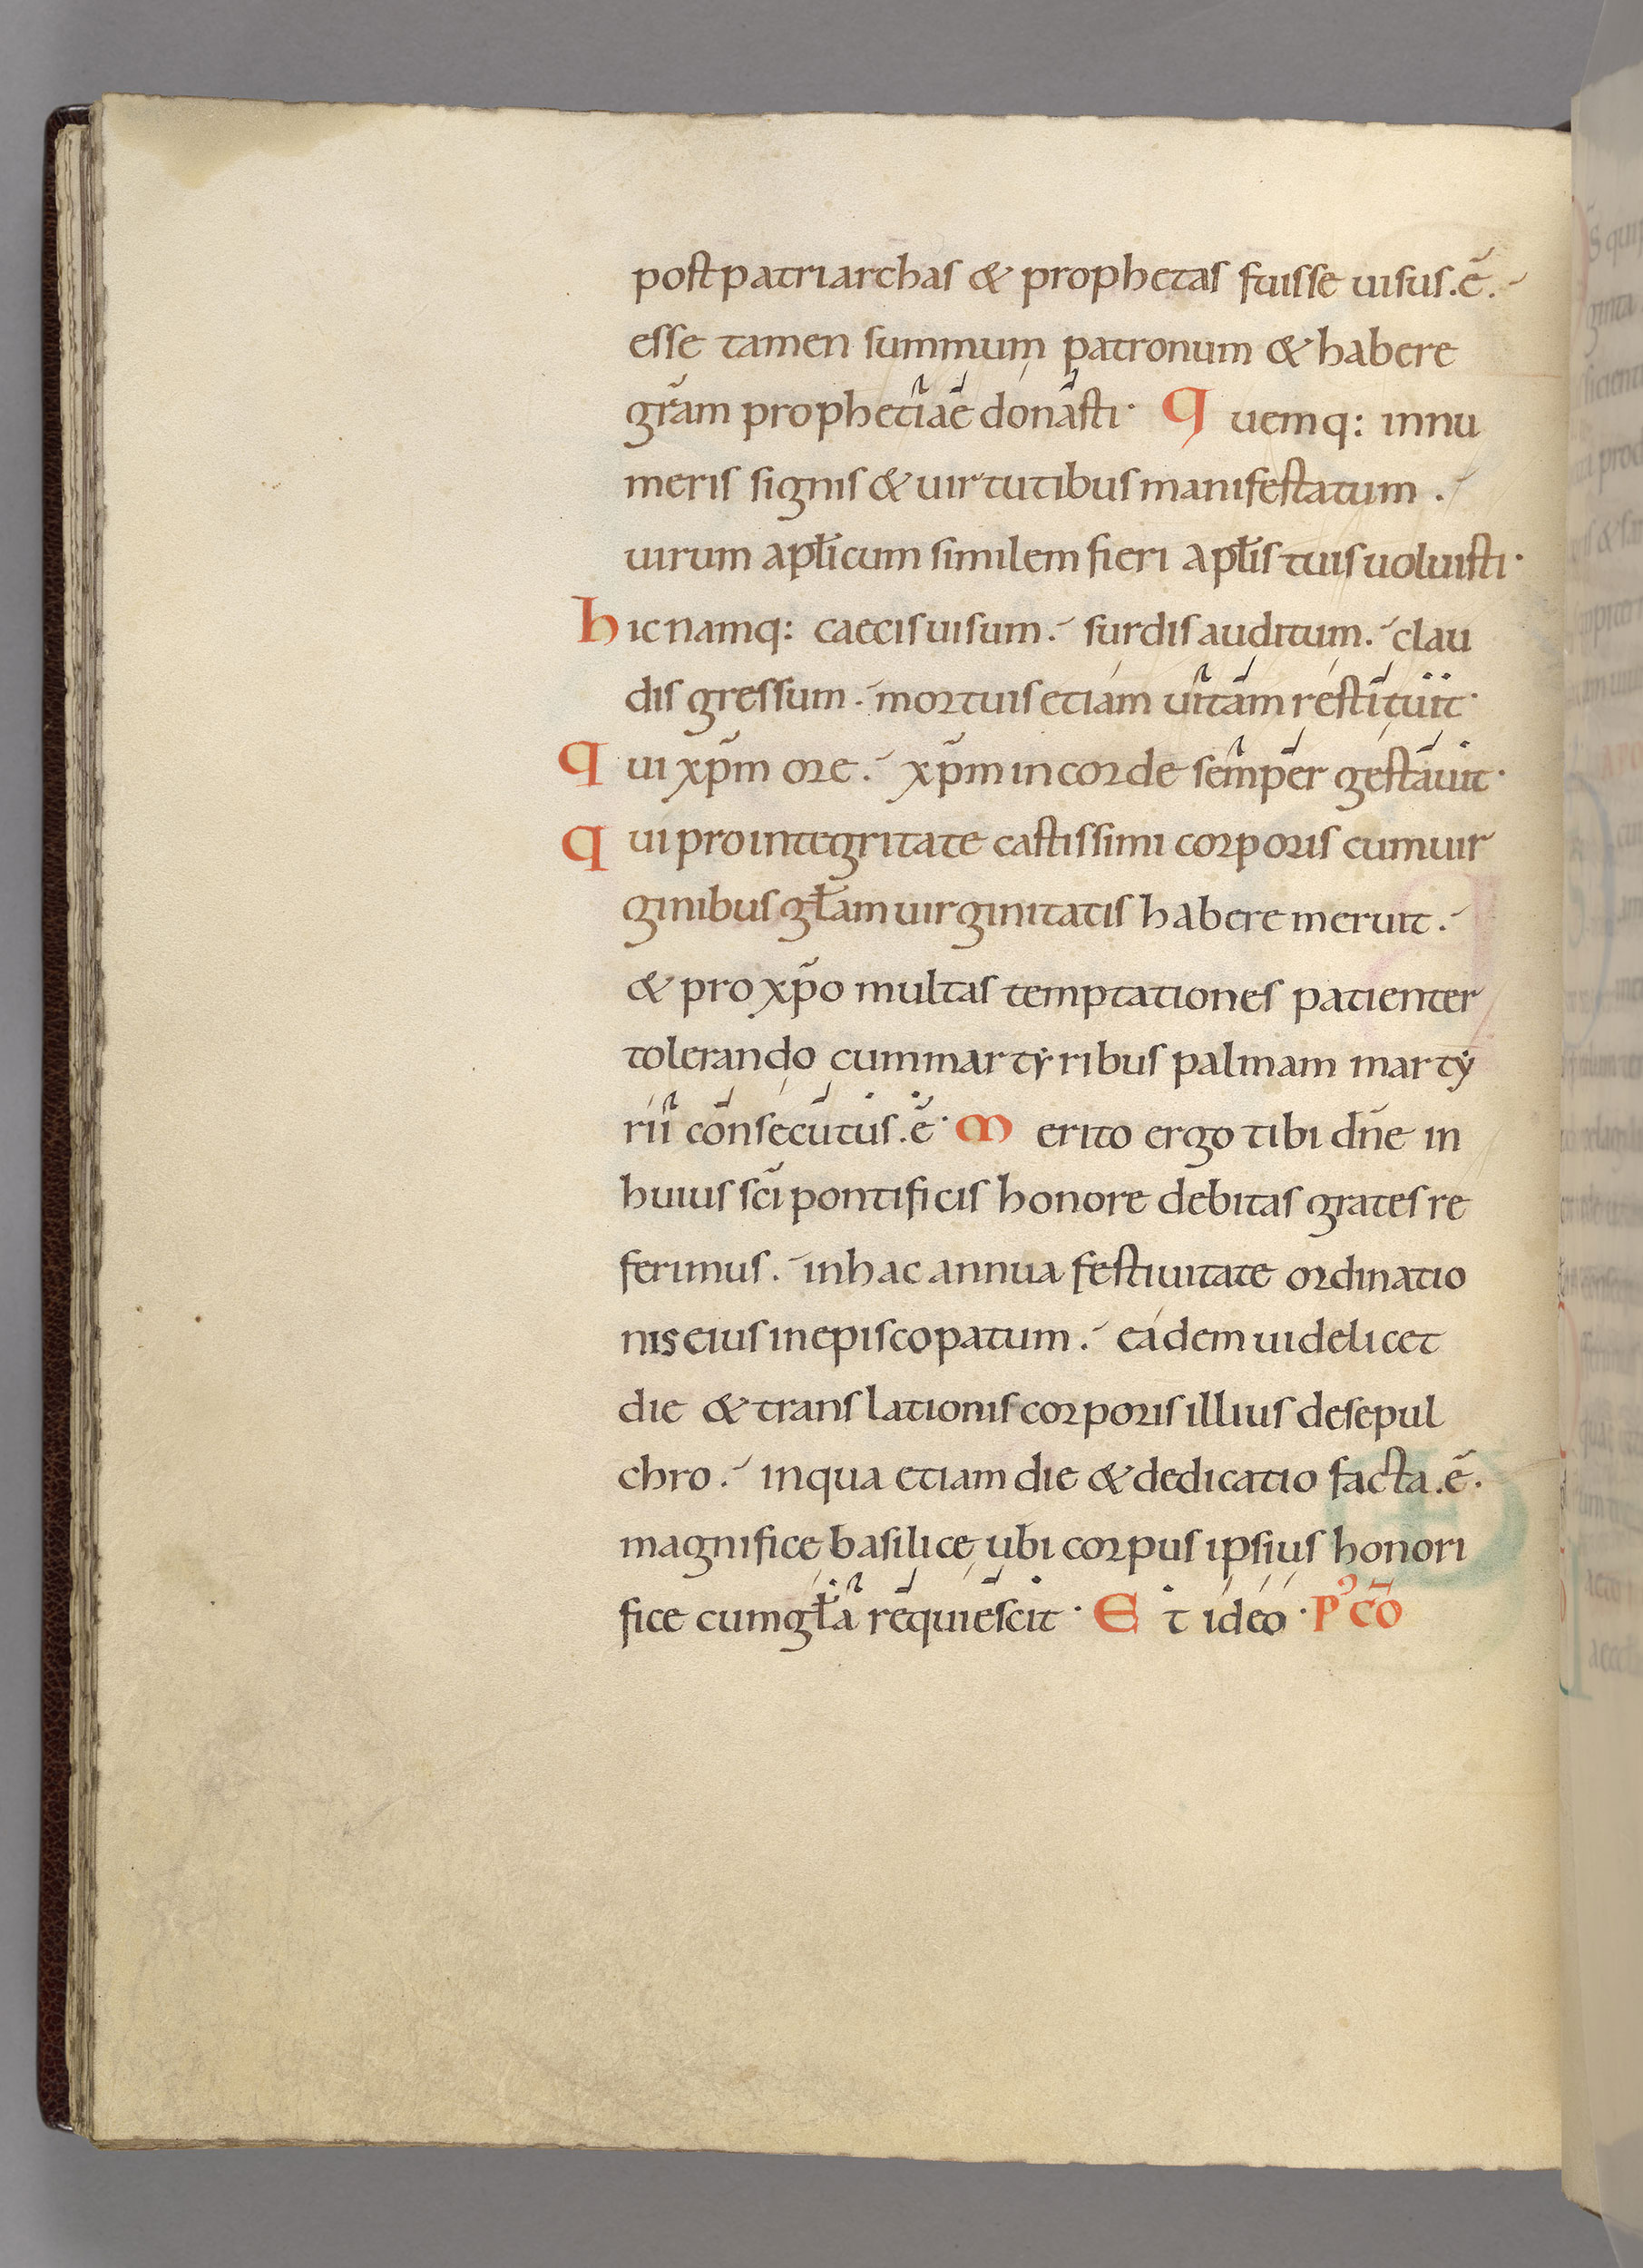 post patriarchas & prophetas fuisse uisus.ē.
esse tamen summum patronum & habere
grām prophetiae donasti· Quemq: innu
meris signis & uirtutibus manifestatum.
uirum aplicum similem fieri aplis tuis uoluisti·
hic namq: caecis uisum. surdis auditum. clau
dis gressum. mortuis etiam uitam restituit·
Qui xp̄m ore. xp̄m in corde semper gestauit·
Qui pro integritate castissimi corporis cum uir
ginibus głam uirginitatis habere meruit.
& pro xp̄o multas temptationes patienter
tolerando cum martẏribus palmam martẏ
rii consecutus.ē· Merito ergo tibi dn̄e in
huius sc̄i pontificis honore debitas grates re
ferimus. in hac annua festiuitate ordinatio
nis eius in episcopatum. eádem uidelicet
die & translationis corporis illius de sepul
chro. in qua etiam die & dedicatio facta.ē.
magnificę basilicę ubi corpus ipsius honori
fice cum gła requiescit· Et ideo· P' cō